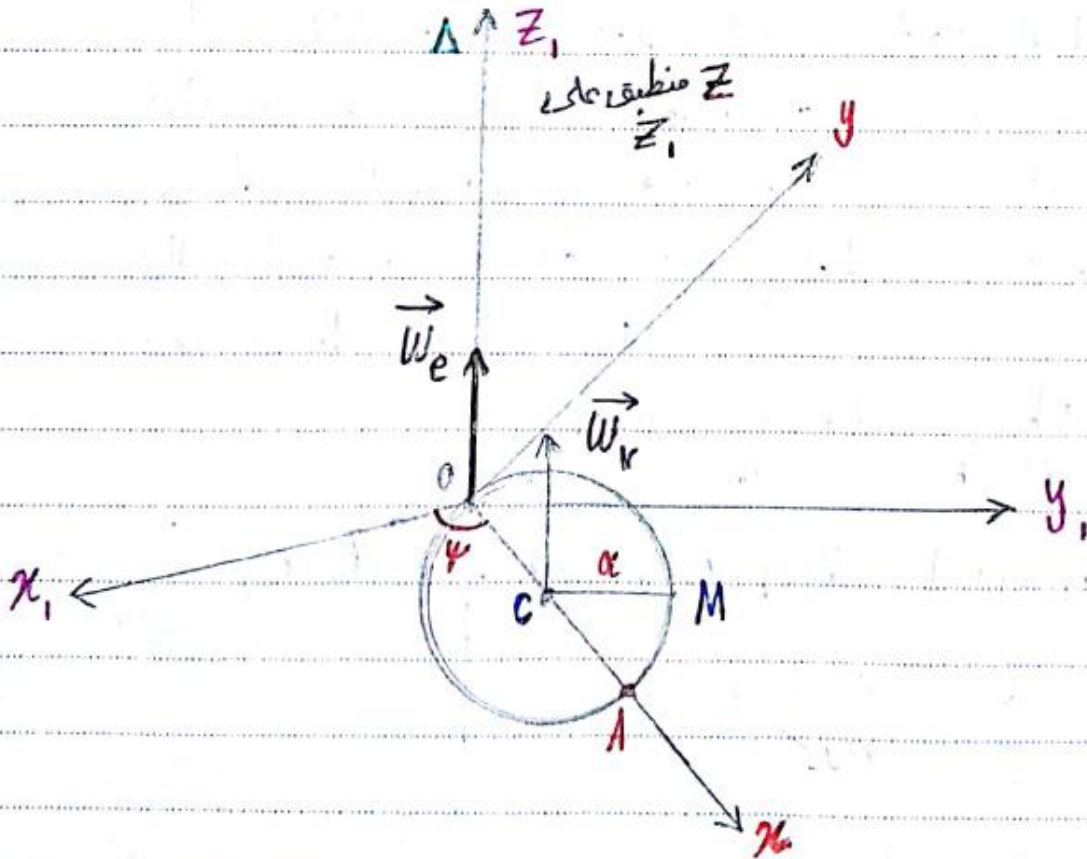 Δ Z₁
Z منطبق على
Z₁
y
W⃗e
W⃗r
O
y₁
ψ
α
x₁
C
M
A
x